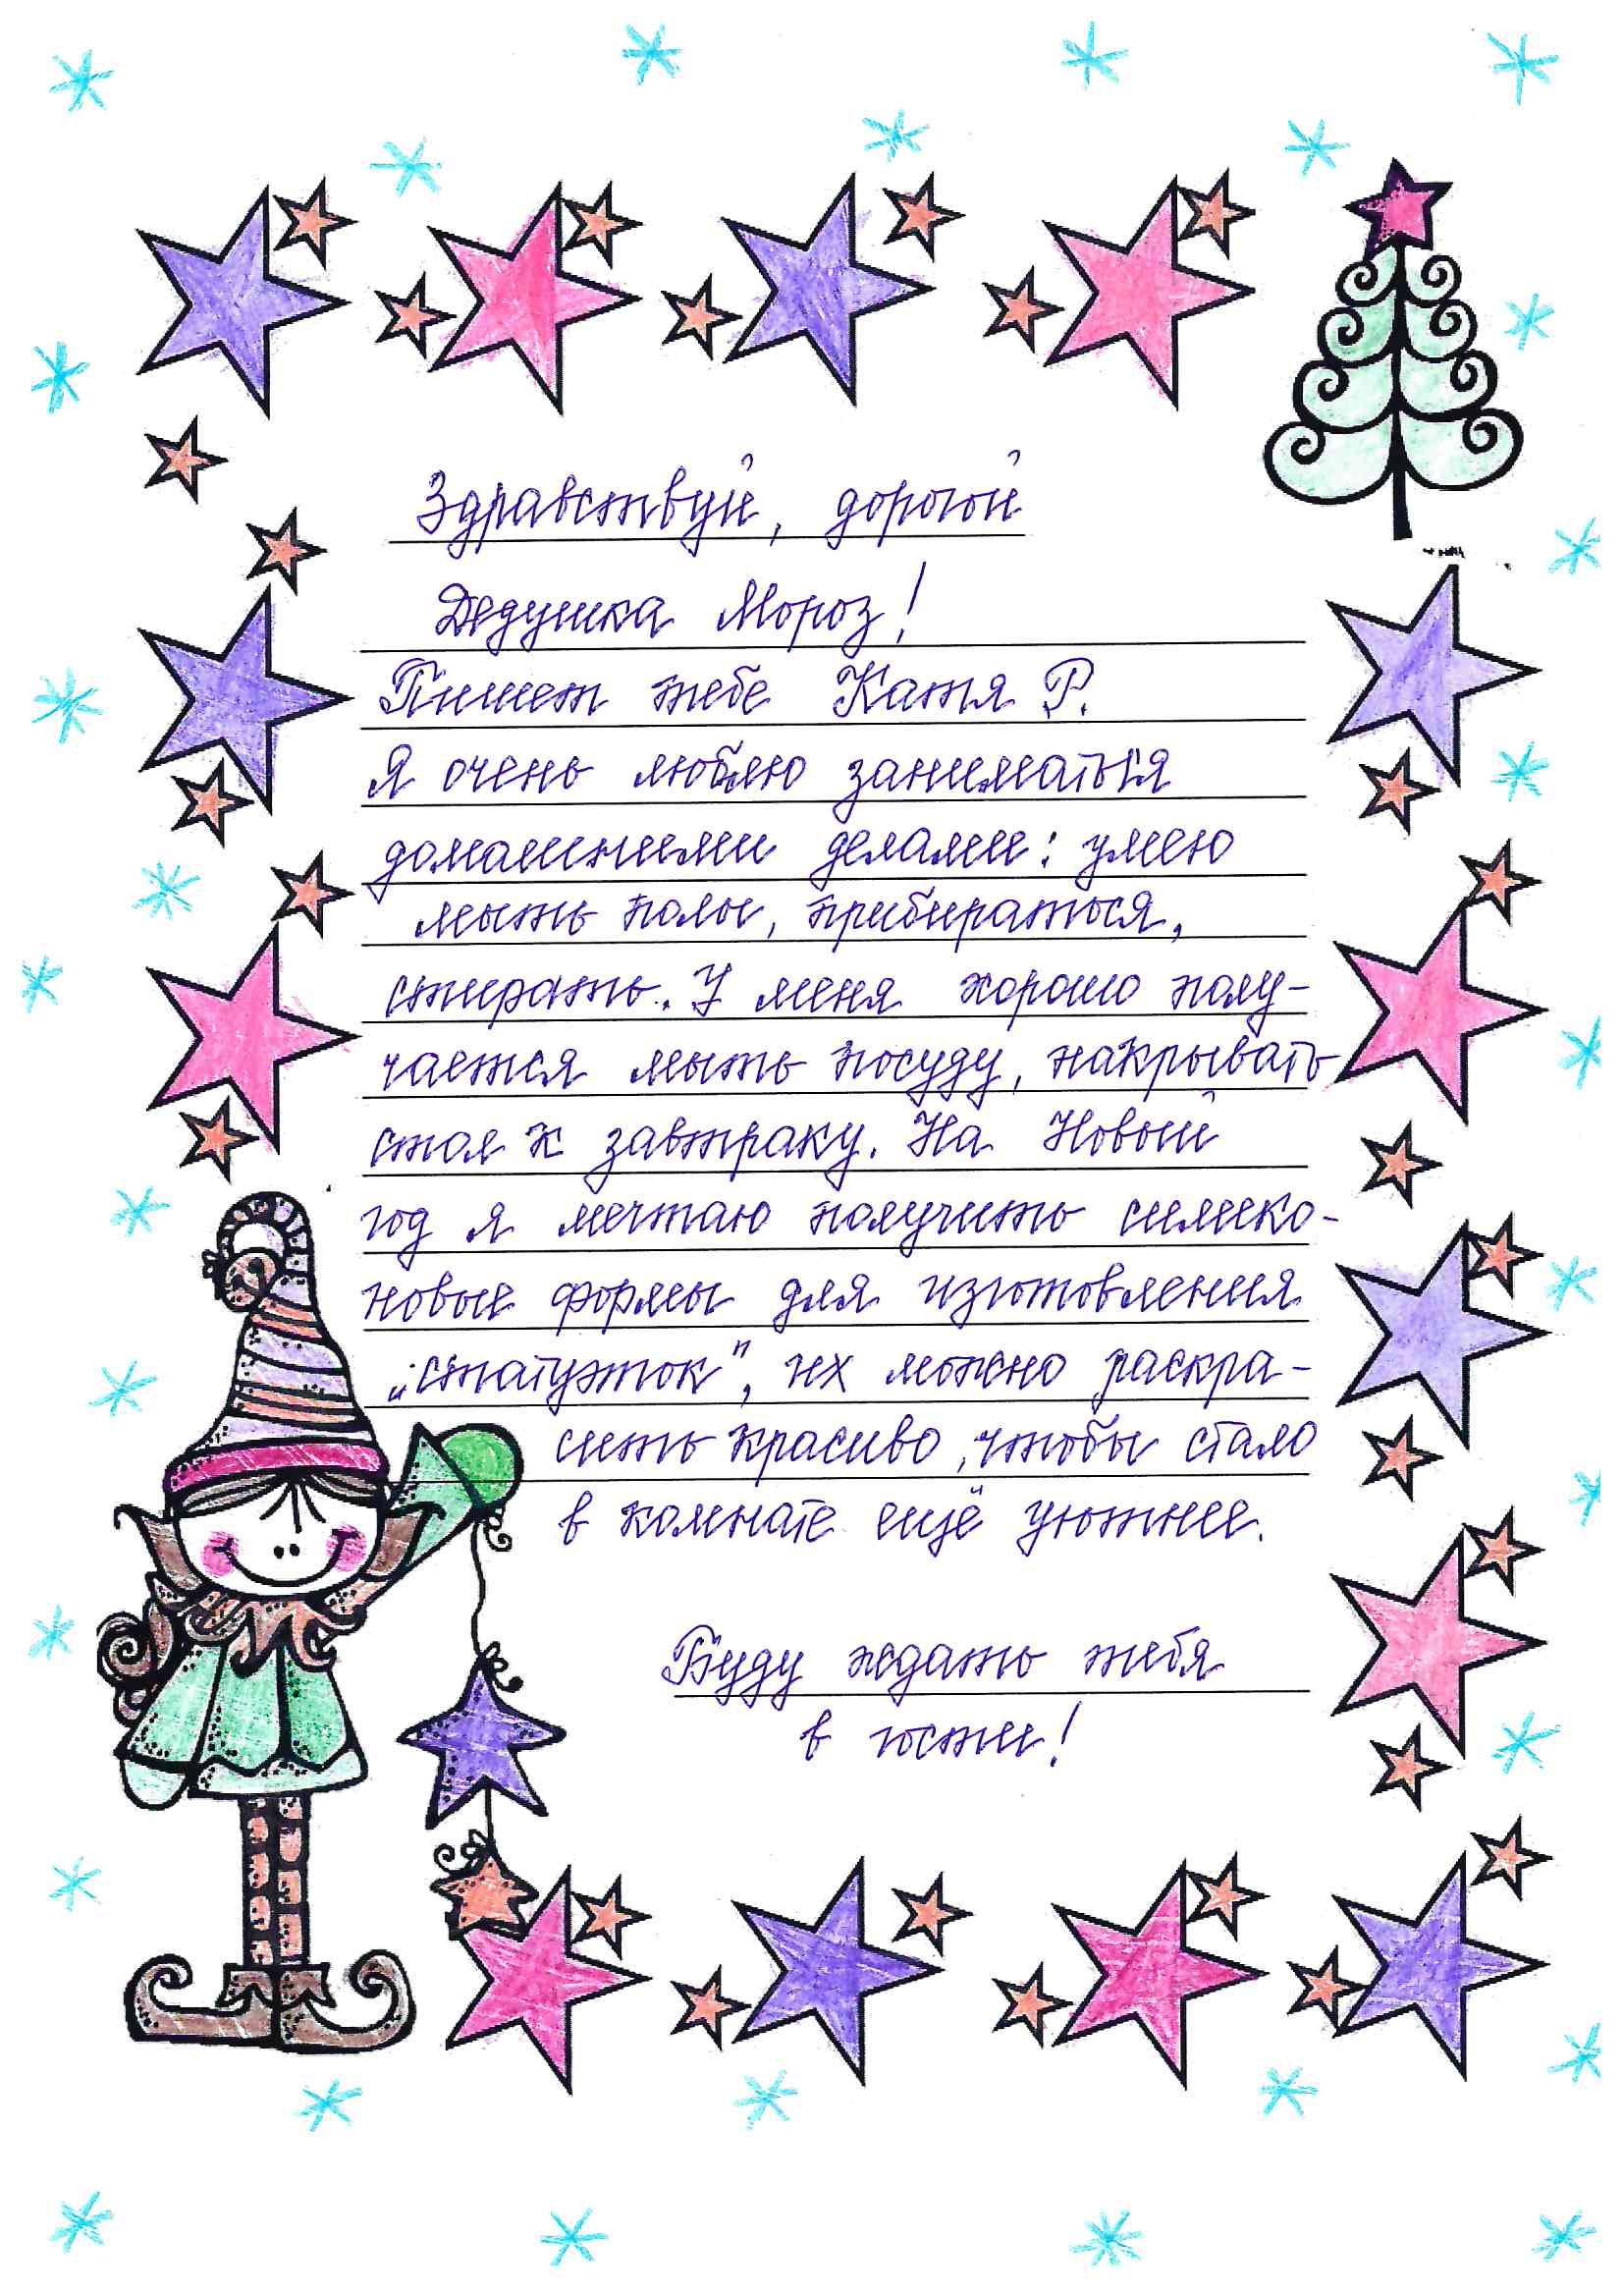 Здравствуй, дорогой
Дедушка Мороз!
Пишет тебе Катя Р.
Я очень люблю заниматься
домашними делами: умею
мыть полы, прибираться,
стирать. У меня хорошо полу-
чается мыть посуду, накрывать
стол к завтраку. На Новый
год я мечтаю получить силико-
новые формы для изготовления
„статуэток", их можно раскра-
сить красиво, чтобы стало
в комнате ещё уютнее.
Буду ждать тебя
в гости!